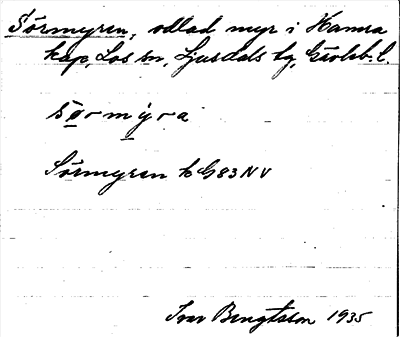 Sörmyren, odlad myr i Hamra
kap, Los sn, Ljusdals tg, Gävleb. l.
sörmýra
Sörmyren k G83NV
Ivar Bengtsson 1935